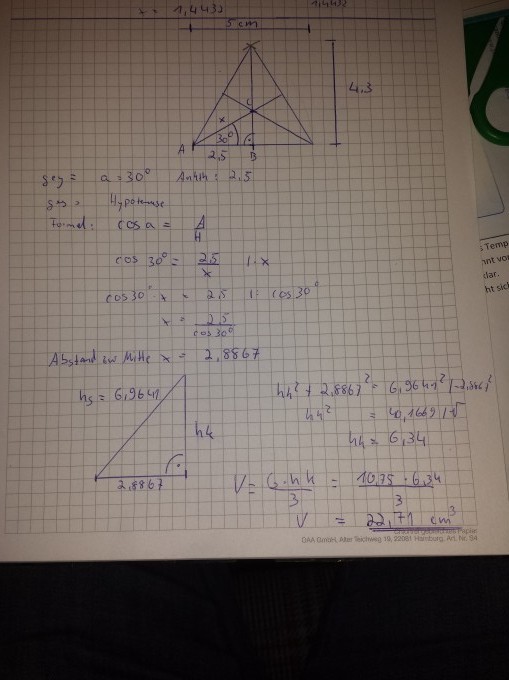 x = 1,4432 1,4432
5 cm
4,3
C
x
30°
A
2,5
B
geg = a = 30° Ankth: 2,5
ges = Hypotenuse
Formel: cos a = A
H
cos 30° = 2,5 | · x
x
cos 30° · x = 2,5 | : cos 30°
x = 2,5
cos 30°
Abstand zur Mitte x = 2,8867
hs = 6,9641
hk
2,8867
hk² + 2,8867² = 6,9641² | -2,886²
hk² = 40,1669 | √
hk = 6,34
V = G · hk = 10,75 · 6,34
3 3
V = 22,71 cm³
DAA GmbH, Alter Teichweg 19, 22081 Hamburg, Art. Nr. 94
Temp
nnt vor
klar.
ht sich